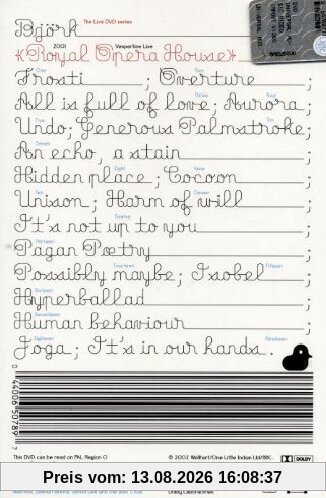 Björk The (Live DVD series
2001 Vespertine Live
«Royal Opera House»
One Two
Frosti ; Overture ;
Three Four
All is full of love; Aurora ;
Six
Undo; Generous Palmstroke;
Seven
An echo, a stain ;
Eight Nine
Hidden place ; Cocoon ;
Ten Eleven
Unison ; Harm of will ;
Twelve
It's not up to you ;
Thirteen
Pagan Poetry ;
Fourteen Fifteen
Possibly maybe; Isobel ;
Sixteen
Hyperballad ;
Seventeen
Human behaviour ;
Eighteen Nineteen
Joga ; It's in our hands.
0 44006 50789
This DVD can be read on PAL, Region 0 © 2002 Wellhart/One Little Indian Ltd/BBC. DOLBY
Preis vom: 13.08.2026 16:08:37